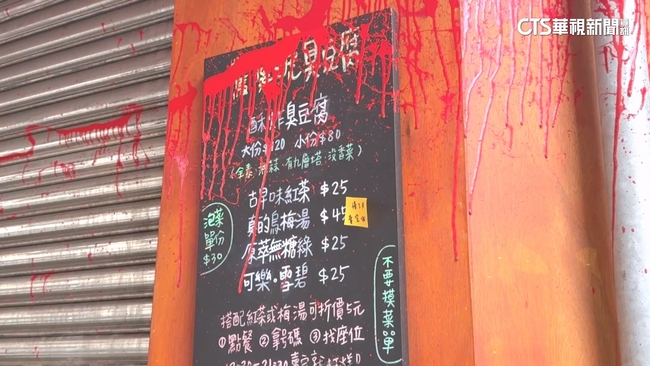 CTS華視新聞網
臭豆腐
臭豆腐
大份$120 小份$80
有九層塔·沒香菜)
古早味紅茶 $25
真的烏梅湯 $45
原萃無糖綠 $25
可樂·雪碧 $25
泡菜
單份
$30
不要摸菜單
搭配紅茶或梅湯可折價5元
①點餐 ②拿號碼 ③找座位